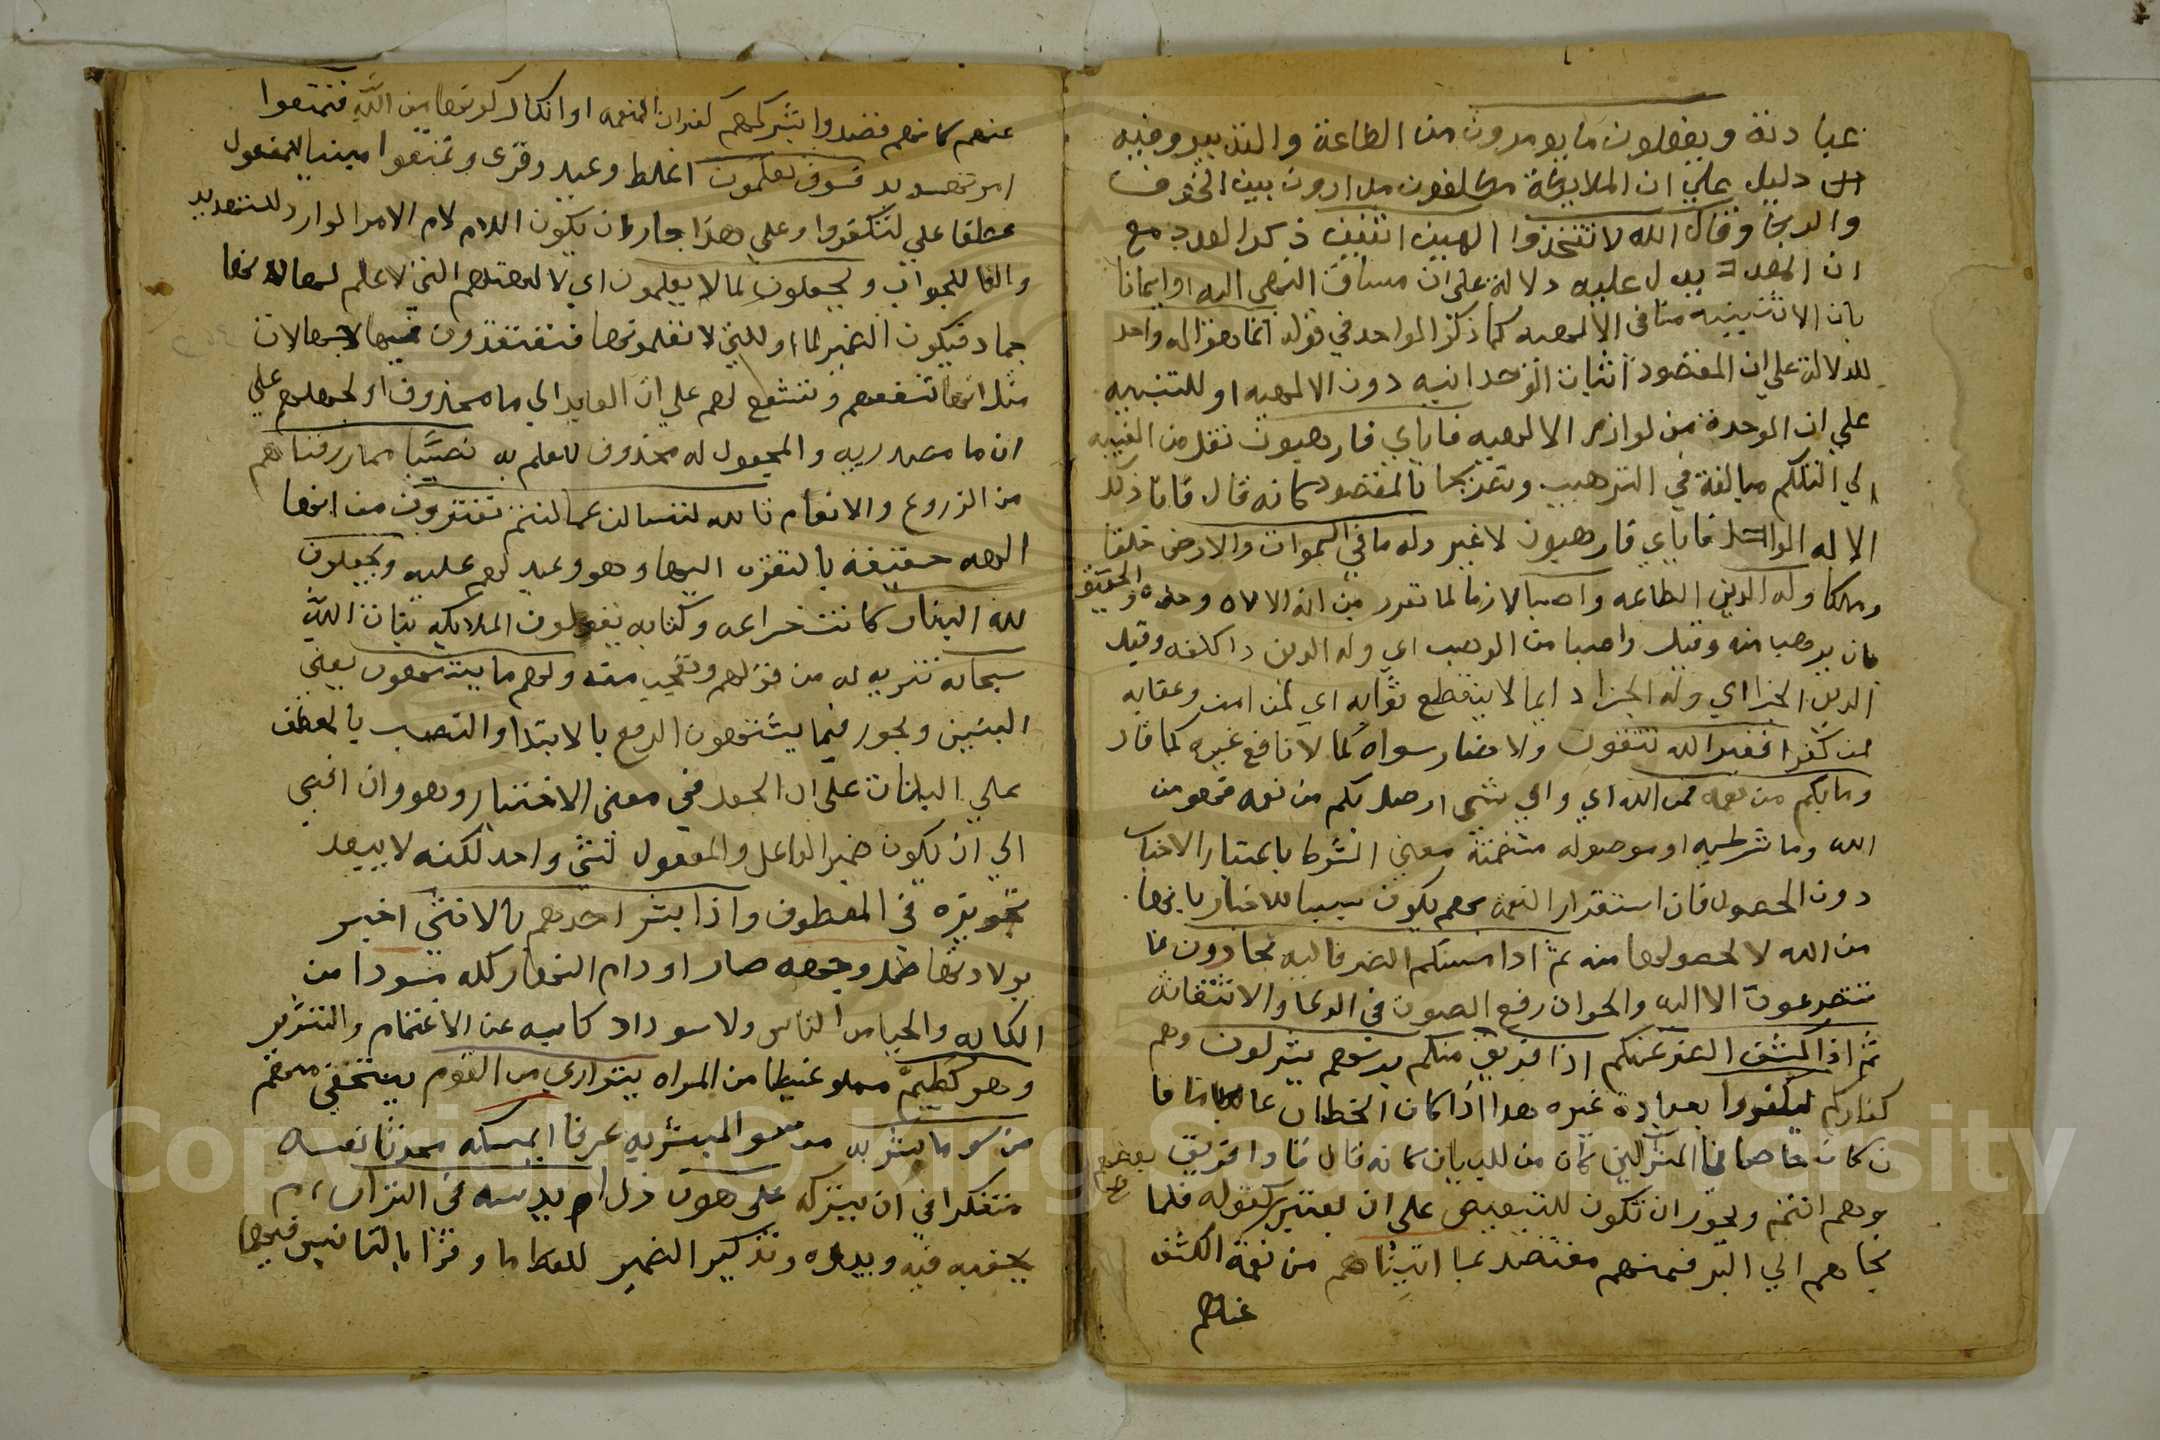 عبادنة ويفعلون ما يومرون من الطاعة والتدبير وفيه
دليل علي ان الملايكة مكلفون مدارون بين الخوف
والرجا وقال الله لا تتخذوا الهين اثنين ذكر العدد مع
ان المعدود يدل عليه دلالة علي ان مساق النهي اليه او ايمانا
بان الاثنينيه تنافي الالهيه كما ذكر الواحد في قوله انما هو اله واحد
للدلالة علي ان المقصود اثبات الوحدانيه دون الالهيه او للتنبيه
علي ان الوحدة من لوازم الالهيه فاياي فارهبون نقل من الغيبه
الي التكلم مبالغة في الترهيب وتصريحا بالمقصود كانه قال فانا ذلك
الاله الواحد فاياي فارهبون لا غير وله ما في السموات والارض خلقا
وملكا وله الدين الطاعه واصبا لازما لما تقرر من انه الاله وحده والحقيق
بان يرهب منه وقيل واصبا من الوصب اي وله الدين ذا كلفه وقيل
الدين الجزا اي وله الجزا دايما لا ينقطع ثوابه اي لمن امن وعقابه
لمن كفر افغير الله تتقون ولا ضار سواه كما لا نافع غيره كما قال
وما بكم من نعمه فمن الله اي واي شي اتصل بكم من نعمه فهو من
الله وما شرطيه او موصوله متضمنة معني الشرط باعتبار الاخبار
دون الحصول فان استقرار النعمه بهم يكون سببا للاخبار بانها
من الله لا لحصولها منه ثم اذا مسكم الضر فاليه تجارون فما
تتضرعون الا اليه والجوار رفع الصوت في الدعا والاستغاثه
ثم اذا كشف الضر عنكم اذا فريق منكم بربهم يشركون وهم
كفاركم ليكفروا بعبادة غيره هذا اذا كان الخطاب عاما فا
ن كان خاصا بالمشركين كان من للبيان كانه قال فاذا فريق
وهم انتم ويجوز ان تكون للتبعيض علي ان يعتبر كقوله فلما
نجاهم الي البر فمنهم مقتصد بما اتيناهم من نعمة الكشف
عنهم
عنهم كانهم قصدوا بشركهم كفران النعمه او انكار كونها من الله فتمتعوا
امر تهديد فسوف تعلمون اغلظ وعيد وقري وتمتعوا مبنيا للمفعول
عطفا علي ليكفروا وعلي هذا جاز ان يكون اللام لام الامر الوارد للتهديد
والفا للجواب ويجعلون لما لا يعلمون اي لالهتهم التي لا علم لها لانها
جماد فيكون الضمير لما او للتي لا تعلمونها فتعتقدون فيها جهالات
مثل انها تنفعهم وتشفع لهم علي ان العايد الي ما محذوف او لجهلهم علي
ان ما مصدريه والمجعول له محذوف للعلم به نصيبا مما رزقناهم
من الزروع والانعام تالله لتسالن عما كنتم تفترون من انها
الهه حقيقة بالتقرب اليها وهو وعيد لهم عليه ويجعلون
لله البنات كانت خزاعه وكنانه يقولون الملايكه بنات الله
سبحانه تنزيه له من قولهم وتعجيب منه ولهم ما يشتهون يعني
البنين ويجوز فيما يشتهون الرفع بالابتدا والنصب بالعطف
علي البنات علي ان الجعل في معني الاختيار وهو وان افضي
الي ان يكون ضمير الفاعل والمفعول لشي واحد لكنه لا يبعد
تجويزه في المعطوف واذا بشر احدهم بالانثي اخبر
بولادتها ظل وجهه صار او دام النهار كله مسودا من
الكابه والحيا من الناس والاسوداد كنايه عن الاغتمام والتشوير
وهو كظيم مملو غيظا من المراه يتواري من القوم يستخفي منهم
من سوء ما بشر به من سوء المبشر به عرفا ايمسكه محدثا نفسه
متفكرا في ان يتركه علي هون ذل ام يدسه في التراب ام
يخفيه فيه ويئده وتذكير الضمير للفظ ما وقرا بالتانيث فيهما
Copyright © King Saud University